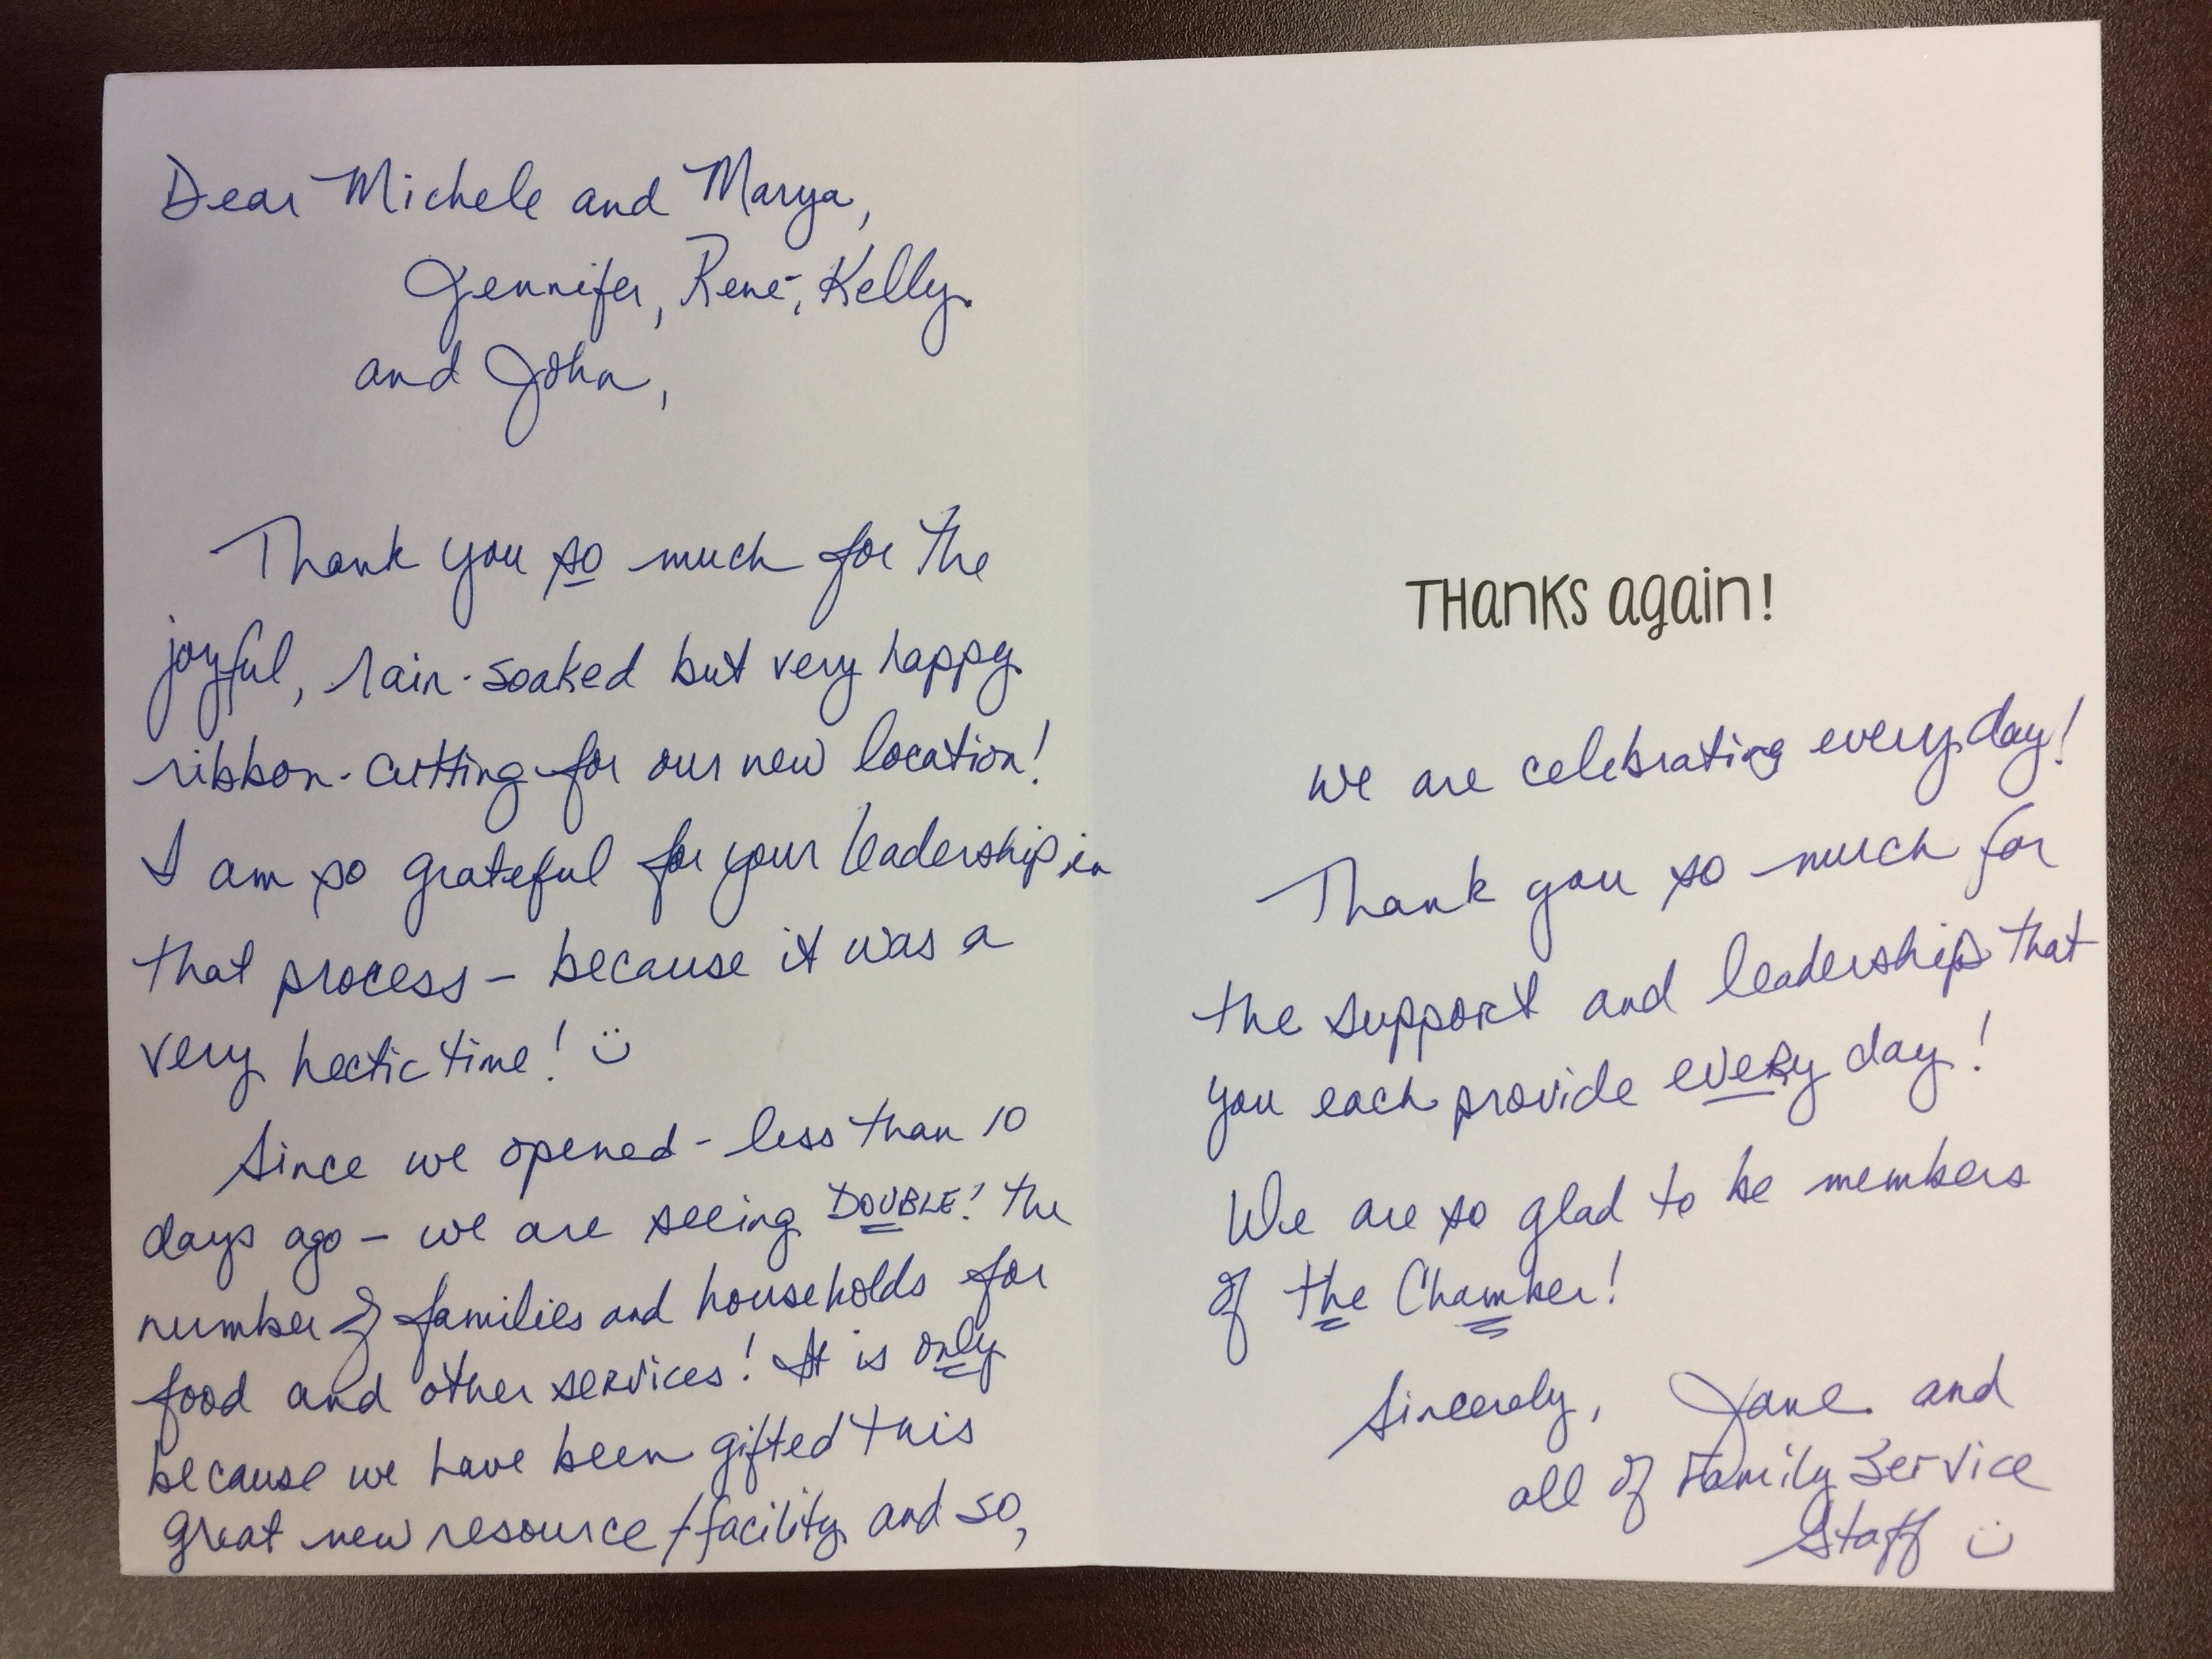 Dear Michele and Marya,
Jennifer, René, Kelly
and John,
Thank you so much for the
joyful, rain-soaked but very happy
ribbon-cutting for our new location!
I am so grateful for your leadership in
that process - because it was a
very hectic time! :)
Since we opened - less than 10
days ago - we are seeing DOUBLE! the
number of families and households for
food and other services! It is only
because we have been gifted this
great new resource/facility and so,
THANKS again!
we are celebrating every day!
Thank you so much for
the support and leadership that
you each provide every day!
We are so glad to be members
of the Chamber!
Sincerely, Jane and
all of Family Service
Staff :)